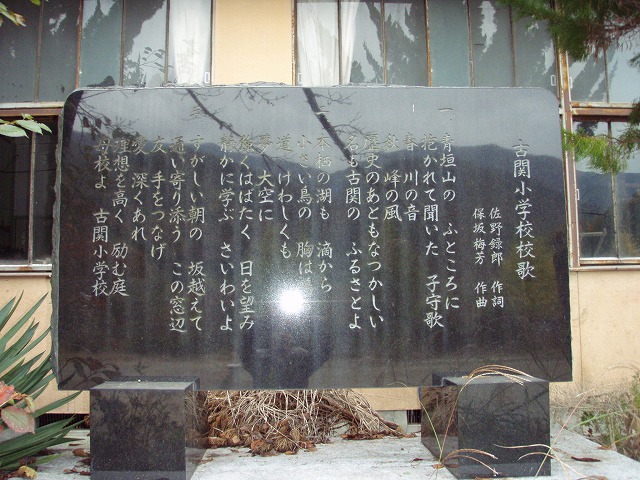 古関小学校校歌
佐野録郎 作詞
保坂梅芳 作曲
一
青垣山の ふところに
抱かれて聞いた 子守歌
川の音
峰の風
歴史のあともなつかしい
名も古関の ふるさとよ
二
本栖の湖も 滴から
小さい鳥の 胸は
道 けわしくも
夢 大空に
強くはばたく 日を望み
静かに学ぶ さいわいよ
三
すがしい朝の 坂越えて
通い寄り添う この窓辺
友 手をつなげ
愛 深くあれ
理想を高く 励む庭
母校よ 古関小学校